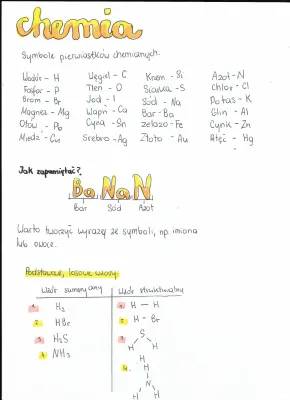 chemia
Symbole pierwiastków chemicznych.
Wodór - H Węgiel - C Krzem - Si Azot - N
Fosfor - P Tlen - O Siarka - S Chlor - Cl
Brom - Br Jod - I Sód - Na Potas - K
Magnez - Mg Wapń - Ca Bar - Ba Glin - Al
Ołów - Pb Cyna - Sn Żelazo - Fe Cynk - Zn
Miedź - Cu Srebro - Ag Złoto - Au Rtęć - Hg
Jak zapamiętać?
BaNaN
Bar Sód Azot
Warto tworzyć wyrazy ze symboli, np. imiona
lub owoce.
Podstawowe, losowe wzory:
Wzór sumaryczny Wzór strukturalny
1. H₂ 1. H - H
2. HBr 2. H - Br
3. H₂S 3. S
H H
4. NH₃ 4. H
N
H H